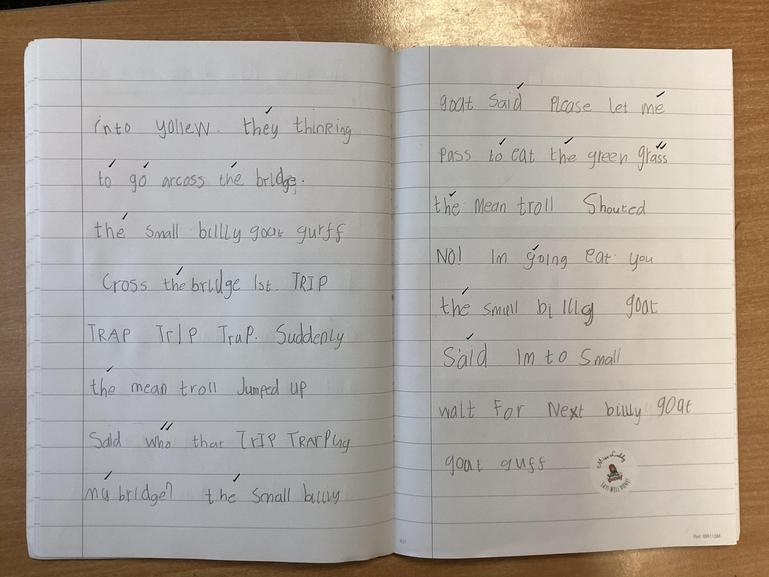 into yollew. they thinring
to go arcoss the bridge.
the small billy goat gurff
Cross the bridge 1st. TRIP
TRAP TrIP TraP. Suddenly
the mean troll Jumped up
Said who that TrIP TRArPing
my bridge? the Small billy
goat Said Please let me
pass to eat the green grass
the mean troll Shouted
NO! Im going eat you
the small billy goat
Said Im to Small
wait For Next billy goat
goat guff